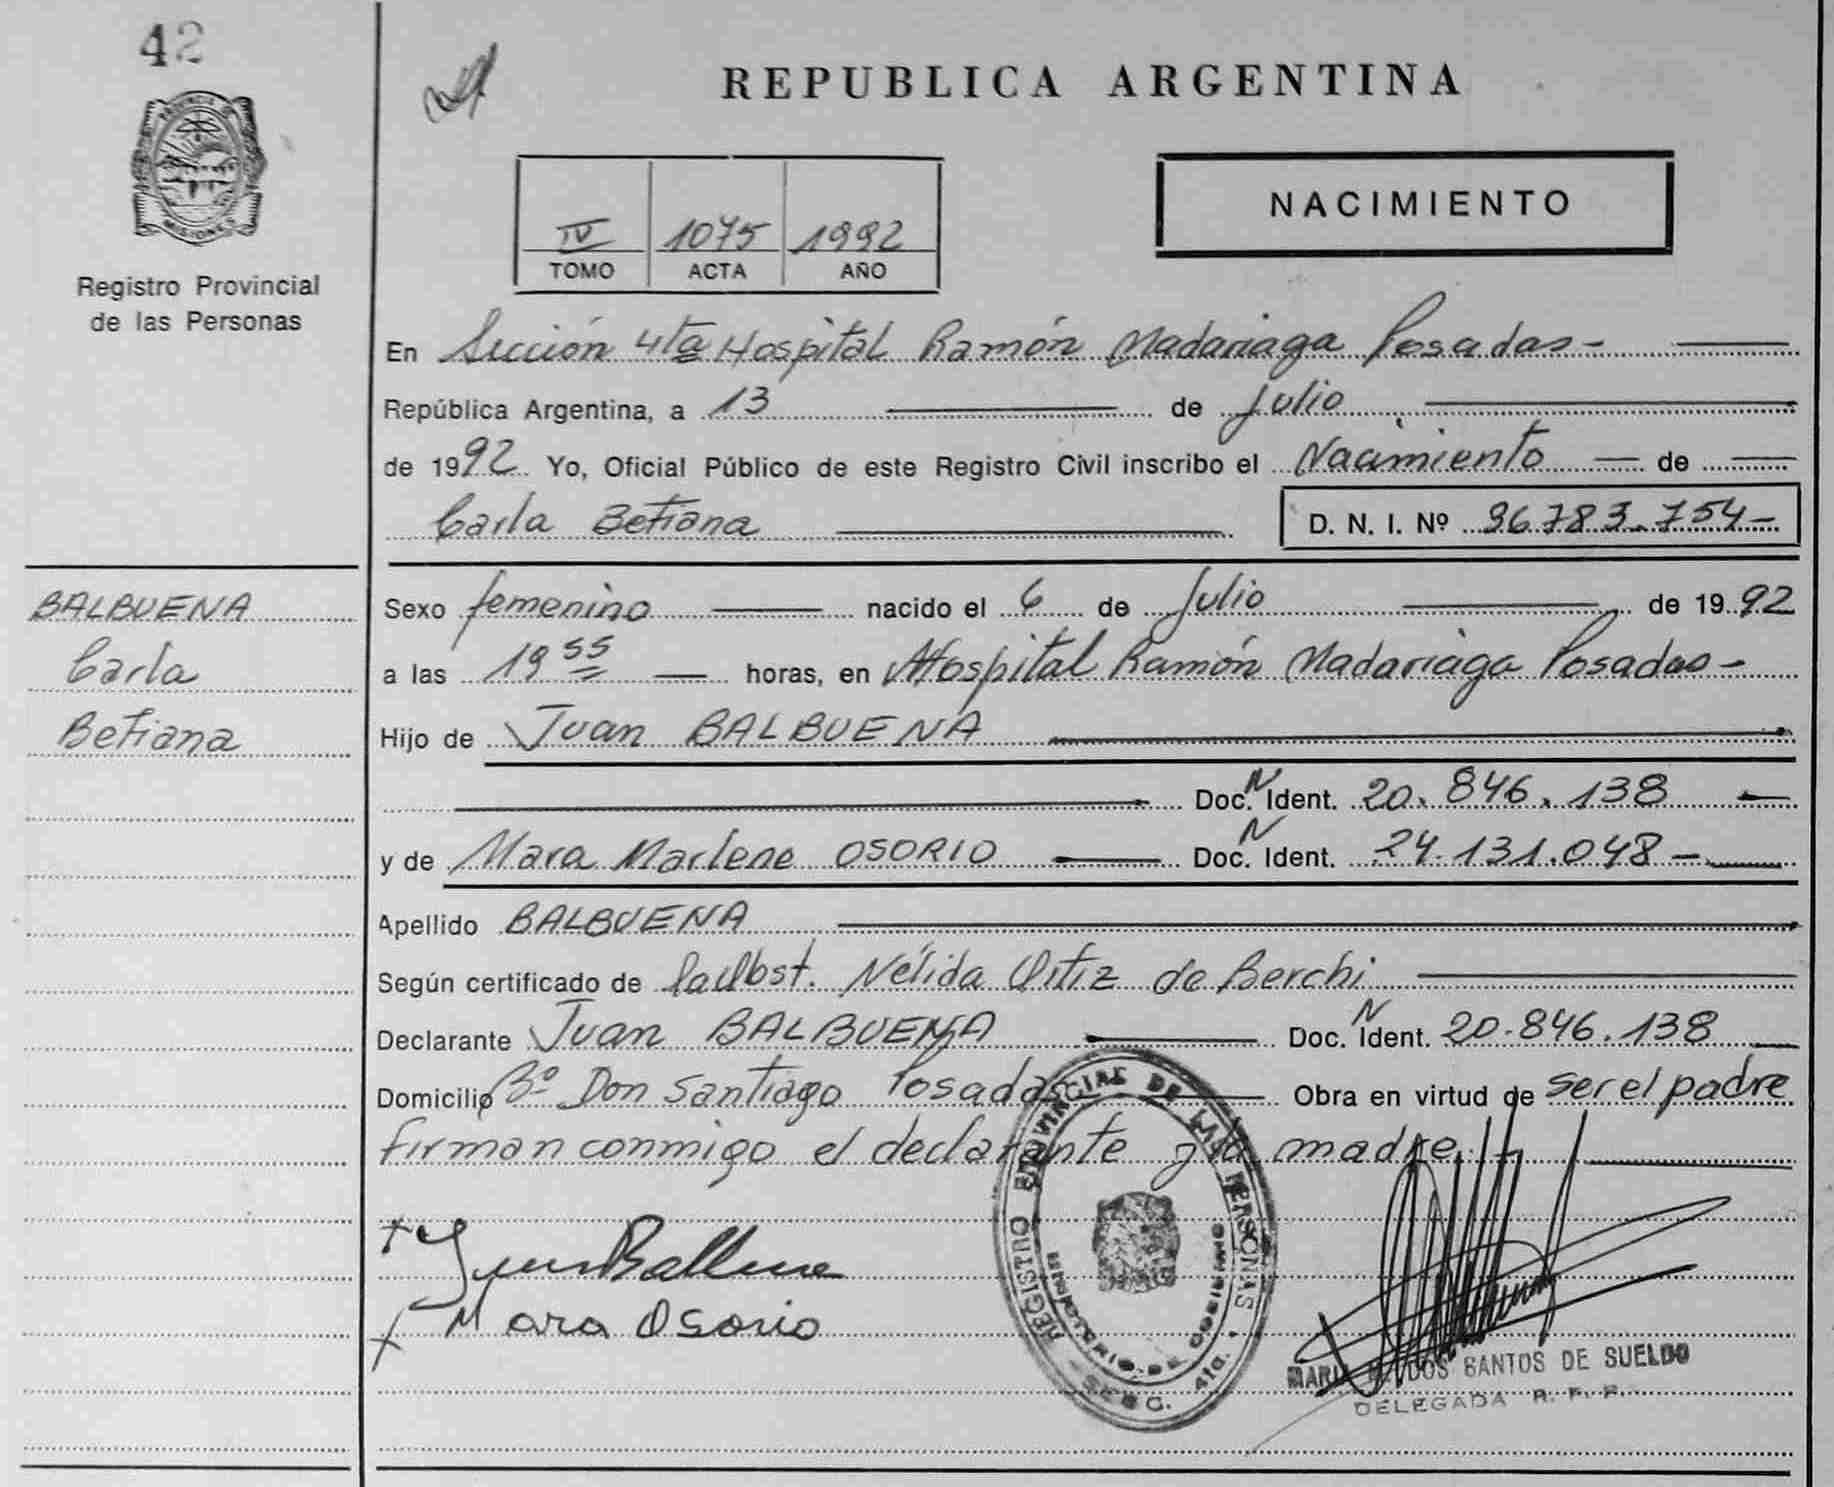 42
PROVINCIA DE
MISIONES
Registro Provincial
de las Personas
BALBUENA
Carla
Betiana
REPUBLICA ARGENTINA
IV 1075 1992
TOMO ACTA AÑO
NACIMIENTO
En Sección 4ta Hospital Ramón Madariaga Posadas-
República Argentina, a 13 de Julio
de 1992 Yo, Oficial Público de este Registro Civil inscribo el Nacimiento de
Carla Betiana D. N. I. Nº 36.783.754-
Sexo femenino nacido el 6 de Julio de 1992
a las 19 55 horas, en Hospital Ramón Madariaga Posadas-
Hijo de Juan BALBUENA
Doc. N Ident. 20.846.138
y de Mara Marlene OSORIO Doc. N Ident. 24.131.048-
Apellido BALBUENA
Según certificado de Nélida Ortiz de Berchi
Declarante Juan BALBUENA Doc. N Ident. 20.846.138
Domicilio Bº Don Santiago Posadas Obra en virtud de ser el padre
firman conmigo el declarante y la madre
Juan Balbuena
Mara Osorio
REGISTRO PROVINCIAL DE LAS PERSONAS
SECC. 4ta.
DOS SANTOS DE SUELDO
DELEGADA R. P. P.